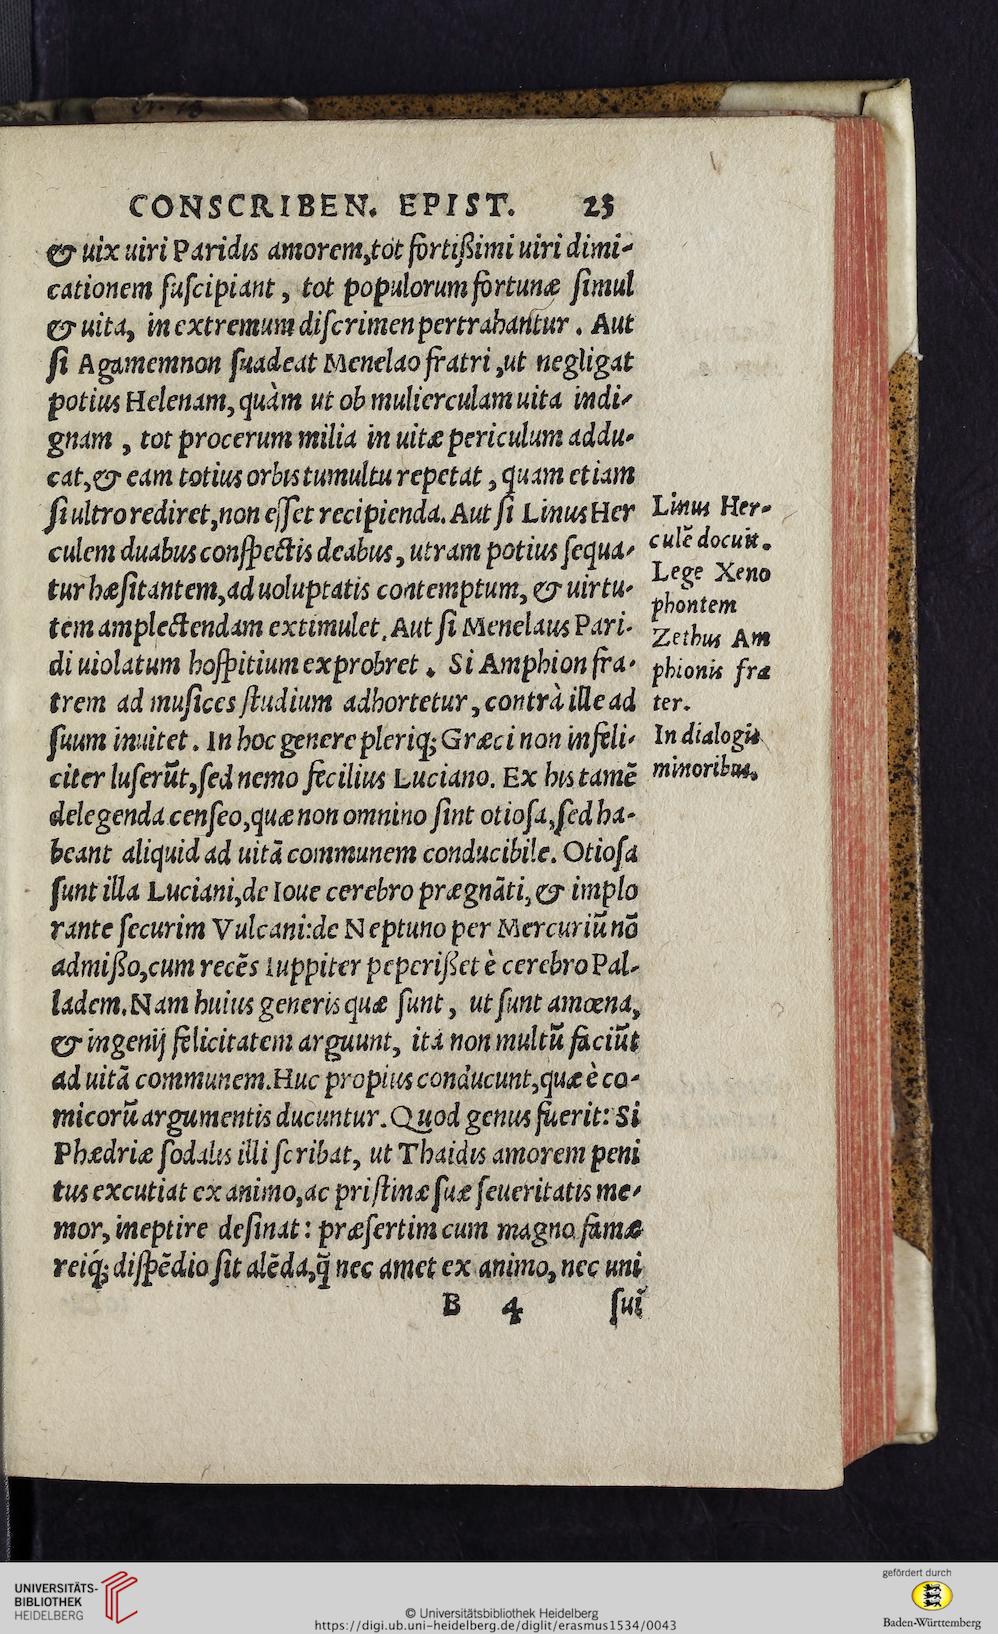 CONSCRIBEN. EPIST. 25
& uix uiri Paridis amorem, tot fortißimi uiri dimi-
cationem ſuſcipiant, tot populorum fortunæ ſimul
& uita, in extremum diſcrimen pertrahantur. Aut
ſi Agamemnon ſuadeat Menelao fratri, ut negligat
potius Helenam, quàm ut ob mulierculam uita indi-
gnam, tot procerum milia in uitæ periculum addu-
cat, & eam totius orbis tumultu repetat, quam etiam
ſi ultro rediret, non eſſet recipienda. Aut ſi Linus Her
culem duabus conſpectis deabus, utram potius ſequa-
tur hæſitantem, ad uoluptatis contemptum, & uirtu-
tem amplectendam extimulet. Aut ſi Menelaus Pari-
di uiolatum hoſpitium exprobret. Si Amphion fra-
trem ad muſices ſtudium adhortetur, contrà ille ad
ſuum inuitet. In hoc genere pleriq; Græci non infeli-
citer luſerũt, ſed nemo fecilius Luciano. Ex his tamẽ
delegenda cenſeo, quæ non omnino ſint otioſa, ſed ha-
beant aliquid ad uitã communem conducibile. Otioſa
ſunt illa Luciani, de Ioue cerebro prægnãti, & implo
rante ſecurim Vulcani: de Neptuno per Mercuriũ nõ
admißo, cum recẽs Iuppiter peperißet è cerebro Pal-
ladem. Nam huius generis quæ ſunt, ut ſunt amœna,
& ingenij felicitatem arguunt, ita non multũ faciũt
ad uitã communem. Huc propius conducunt, quæ è co-
micorũ argumentis ducuntur. Quod genus fuerit: Si
Phædriæ ſodalis illi ſcribat, ut Thaidis amorem peni
tus excutiat ex animo, ac priſtinæ ſuæ ſeueritatis me-
mor, ineptire deſinat: præſertim cum magno famæ
reiq́; diſpẽdio ſit alẽda, q̃ nec amet ex animo, nec uni
B 4 ſui
Linus Her-
culẽ docuit.
Lege Xeno
phontem
Zethus Am
phionis fra
ter.
In dialogis
minoribus.
UNIVERSITÄTS-
BIBLIOTHEK
HEIDELBERG
© Universitätsbibliothek Heidelberg
https://digi.ub.uni-heidelberg.de/diglit/erasmus1534/0043
gefördert durch
Baden-Württemberg